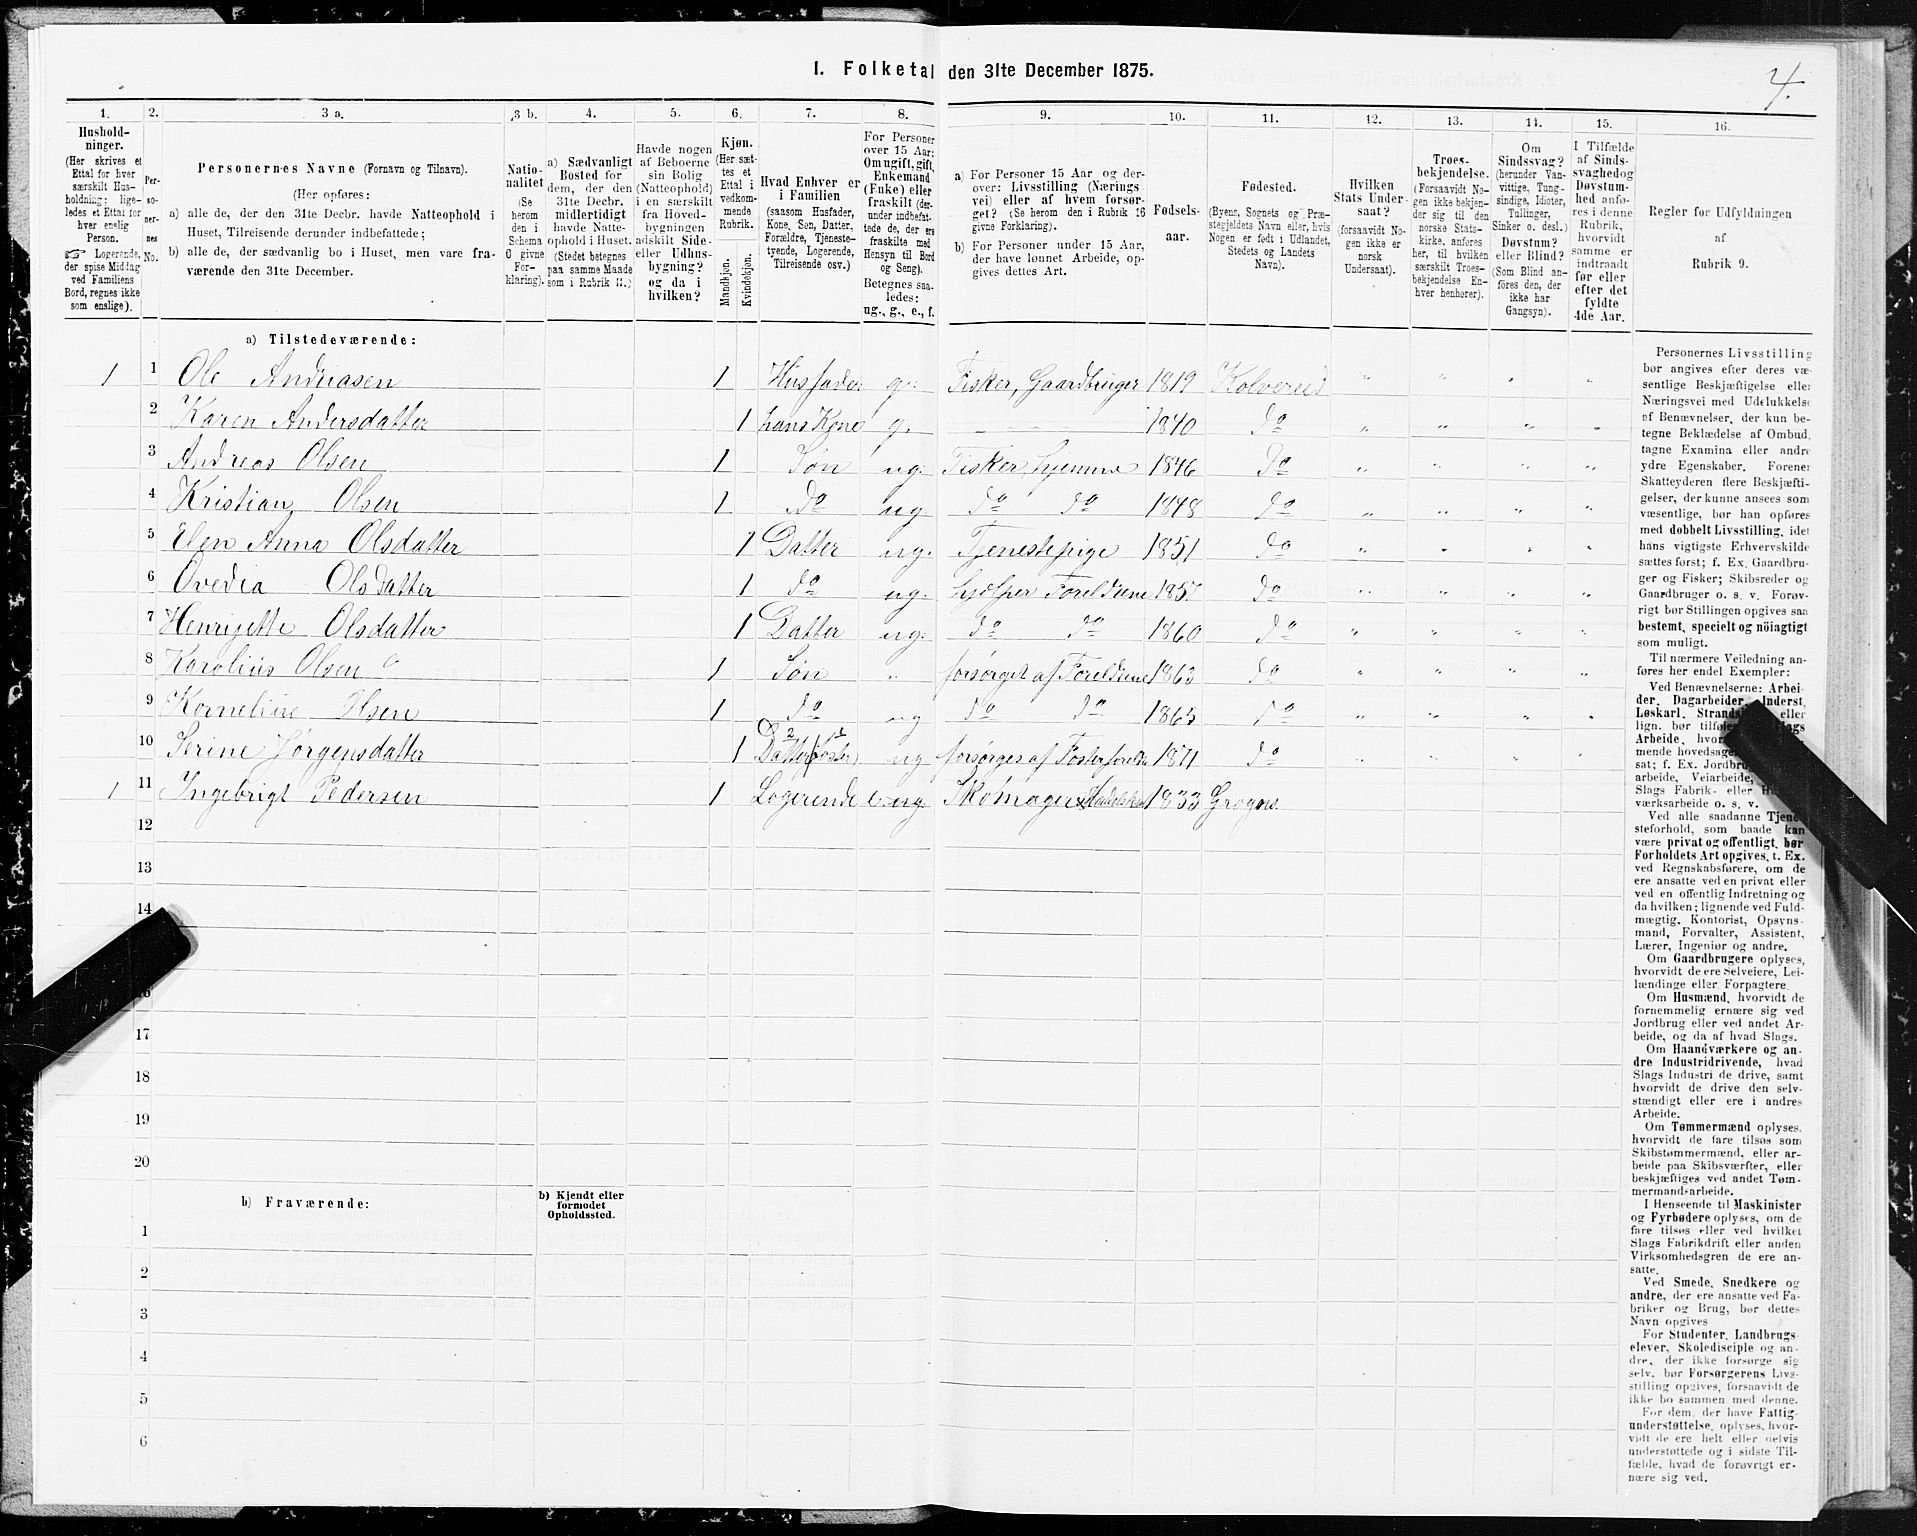 I. Folketal den 31te December 1875.
4.
1. 2. 3 a. 3 b. 4. 5. 6. 7. 8. 9. 10. 11. 12. 13. 14. 15. 16.
Hushold-
ninger.
(Her skrives et
Ettal for hver
særskilt Hus-
holdning; lige-
ledes et Ettal for
hver enslig
Person.
☞ Logerende,
der spise Middag
ved Familiens
Bord, regnes ikke
som enslige).
Per-
so-
ner-
nes
No.
Personernes Navne (Fornavn og Tilnavn).
(Her opføres:
a) alle de, der den 31te Decbr. havde Natteophold i
Huset, Tilreisende derunder indbefattede;
b) alle de, der sædvanlig bo i Huset, men vare fra-
værende den 31te December.
Natio-
nalitet
(Se
herom
den i
Schema
C givne
For-
klaring).
a) Sædvanligt
Bosted for
dem, der den
31te Decbr.
midlertidigt
havde Natte-
ophold i Huset.
(Stedet betegnes
paa samme Maade
som i Rubrik 11.)
Havde nogen
af Beboerne
sin Bolig
(Natteophold)
i en særskilt
fra Hoved-
bygningen
adskilt Side-
eller Udhus-
bygning?
og da i
hvilken?
Kjøn.
(Her sæt-
tes et
Ettal i
vedkom-
mende
Rubrik.
Mandkjøn.
Kvindekjøn.
Hvad Enhver er
i Familien
(saasom Husfader,
Kone, Søn, Datter,
Forældre, Tjeneste-
tyende, Logerende,
Tilreisende osv.)
For Personer
over 15 Aar:
Om ugift, gift,
Enkemand
(Enke) eller
fraskilt (der-
under indbefat-
tede de, der ere
fraskilte med
Hensyn til Bord
og Seng).
Betegnes saa-
ledes:
ug., g., e., f.
a) For Personer 15 Aar og der-
over: Livsstilling (Nærings-
vei) eller af hvem forsør-
get? (Se herom den i Rubrik 16
givne Forklaring).
b) For Personer under 15 Aar,
der have lønnet Arbeide, op-
gives dettes Art.
Fødsels-
aar.
Fødested.
(Byens, Sognets og Præ-
stegjeldets Navn eller, hvis
Nogen er født i Udlandet,
Stedets og Landets
Navn).
Hvilken
Stats Under-
saat?
(forsaavidt No-
gen ikke er
norsk
Undersaat).
Troes-
bekjendelse.
(Forsaavidt No-
gen ikke bekjen-
der sig til den
norske Stats-
kirke, anføres
her, til hvilken
særskilt Troes-
bekjendelse En-
hver henhører).
Om
Sindssvag?
(herunder Van-
vittige, Tung-
sindige, Idioter,
Tullinger,
Sinker o. desl.)
Døvstum?
eller Blind?
(Som Blind an-
føres den, der
ikke har
Gangsyn).
I Tilfælde
af Sinds-
svaghed og
Døvstum-
hed anfø-
res i denne
Rubrik,
hvorvidt
samme er
indtraadt
før eller
efter det
fyldte
4de Aar.
Regler for Udfyldningen
af
Rubrik 9.
a) Tilstedeværende:
1 1 Ole Andreasen 1 Husfader g. Fisker, Gaardbruger 1819 Kolvereid " " " "
2 Karen Andersdatter 1 hans Kone g. 1840 do " " " "
3 Andreas Olsen 1 Søn ug. Fisker, hjemme 1846 do " " " "
4 Kristian Olsen 1 do ug. do do 1848 do " " " "
5 Elen Anna Olsdatter 1 Datter ug. Tjenestepige 1851 do " " " "
6 Ovedia Olsdatter 1 do ug. hjelper Foreldrene 1857 do " " " "
7 Henrigette Olsdatter 1 Datter ug. do do 1860 do " " " "
8 Karolius Olsen 1 Søn " forsørget af Foreldrene 1863 do " " " "
9 Kornelius Olsen 1 do ug do do 1865 do " " " "
10 Serine Jørgensdatter 1 Datter (Foster) ug forsørges af Fosterforeldre 1871 do " " " "
1 11 Ingebrigt Pedersen 1 Logerende ug Skomager 1833
12
13
14
16
17
18
19
20
b) Fraværende:
b) Kjendt eller
formodet
Opholdssted.
1
2
3
4
5
6
Personernes Livsstilling
bør angives efter deres væ-
sentlige Beskjæftigelse eller
Næringsvei med Udelukkelse
af Benævnelser, der kun be-
tegne Beklædelse af Ombud,
tagne Examina eller andre
ydre Egenskaber. Forener
Skatteyderen flere Beskjæfti-
gelser, der kunne ansees som
væsentlige, bør han opføres
med dobbelt Livsstilling, idet
hans vigtigste Erhvervskilde
sættes først; f. Ex. Gaardbru-
ger og Fisker; Skibsreder og
Gaardbruger o. s. v. Forøv-
rigt bør Stillingen opgives saa
bestemt, specielt og nöiagtigt
som muligt.
Til nærmere Veiledning an-
føres her endel Exempler:
Ved Benævnelserne: Arbei-
der, Dagarbeider, Inderst,
Løskarl, eller
lign. bør
Arbeide,
mende
sat; f. Ex.
arbeide, Veiarbeide,
Slags Fabrik- eller
værksarbeide o. s. v.
Ved alle saadanne Tjene-
steforhold, som baade kan
være privat og offentligt, bør
Forholdets Art opgives, t. Ex.
ved Regnskabsførere, om de
ere ansatte ved en privat eller
ved en offentlig Indretning og
da hvilken; lignende ved Fuld-
mægtig, Kontorist, Opsyns-
mand, Forvalter, Assistent,
Lærer, Ingeniør og andre.
Om Gaardbrugere oplyses,
hvorvidt de ere Selveiere, Lei-
lændinge eller Forpagtere.
Om Husmænd, hvorvidt de
fornemmelig ernære sig ved
Jordbrug eller ved andet Ar-
beide, og da af hvad Slags.
Om Haandværkere og an-
dre Industridrivende, hvad
Slags Industri de drive, samt
hvorvidt de drive den selv-
stændigt eller ere i andres
Arbeide.
Om Tømmermænd oplyses,
hvorvidt de fare tilsøs som
Skibstømmermænd, eller ar-
beide paa Skibsværfter, eller
beskjæftiges ved andet Tøm-
mermandsarbeide.
I Henseende til Maskinister
og Fyrbødere oplyses, om de
fare tilsøs eller ved hvilket
Slags Fabrikdrift eller anden
Virksomhedsgren de ere an-
satte.
Ved Smede, Snedkere og
andre, der ere ansatte ved Fa-
briker og Brug, bør dettes
Navn opgives
For Studenter, Landbrugs-
elever, Skoledisciple og an-
dre, der ikke forsørge sig
selv, bør Forsørgerens Livs-
stilling opgives, forsaavidt de
ikke bo sammen med denne.
For dem, der have Fattig-
understøttelse, oplyses, hvor-
vidt de ere helt eller delvis
understøttede og i sidste Til-
fælde, hvad de forøvrigt er-
nære sig ved.